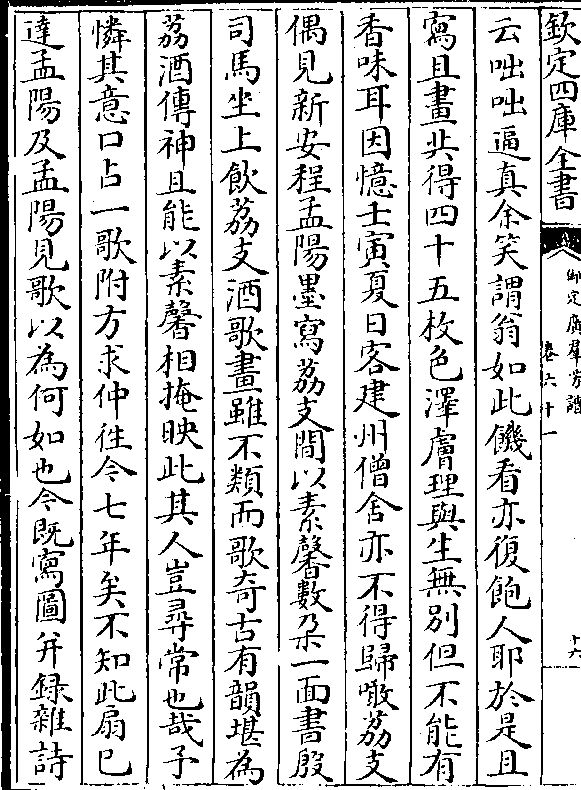 欽定四庫全書
御定廣羣芳譜
卷六十一
十六
云咄咄逼真余笑謂翁如此饑看亦復飽人耶於是且
寫且畫共得四十五枚色澤膚理與生無別但不能有
香味耳因憶壬寅夏日客建州僧舍亦不得歸噉荔支
偶見新安程孟陽墨寫荔支間以素馨數朶一面書殷
司馬坐上飲荔支酒歌畫雖不類而歌奇古有韻堪為
荔酒傳神且能以素馨相掩映此其人豈尋常也哉予
憐其意口占一歌附方求仲徃今七年矣不知此扇已
達孟陽及孟陽見歌以為何如也今既寫圖并録雜詩